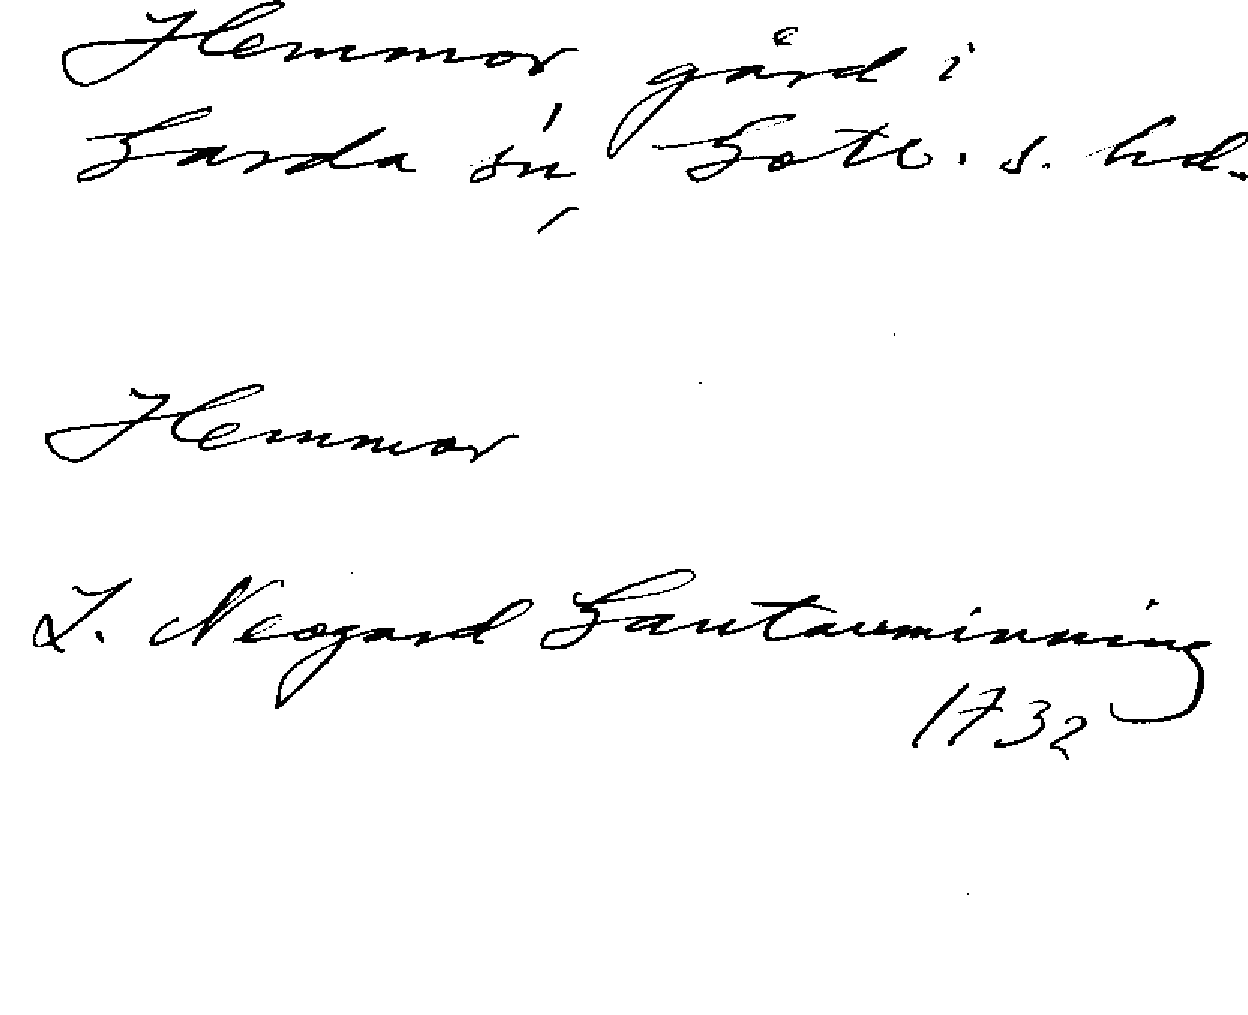 Hemmor gård i
Garda sn, Gotl. s. hd.
Hemmor
L. Neogard Gautauminning
1732